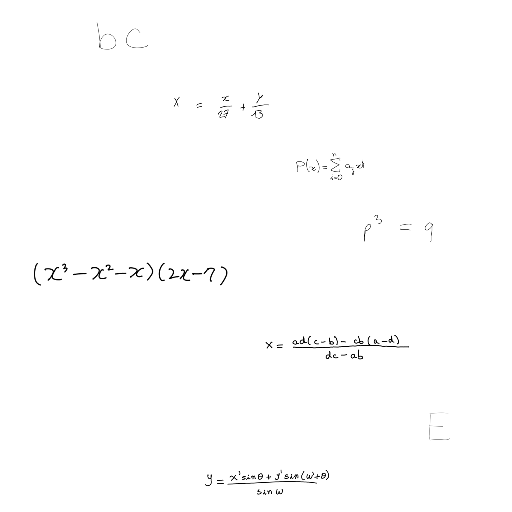 b c
X = x/27 + y/13
P(x) = ∑_{i=0}^{n} a_i x^i
p^3 = q
(x^3 - x^2 - x)(2x - 7)
x = (ad(c-b) - cb(a-d))/(dc - ab)
E
y = (x' sin θ + y' sin(ω+θ))/(sin ω)